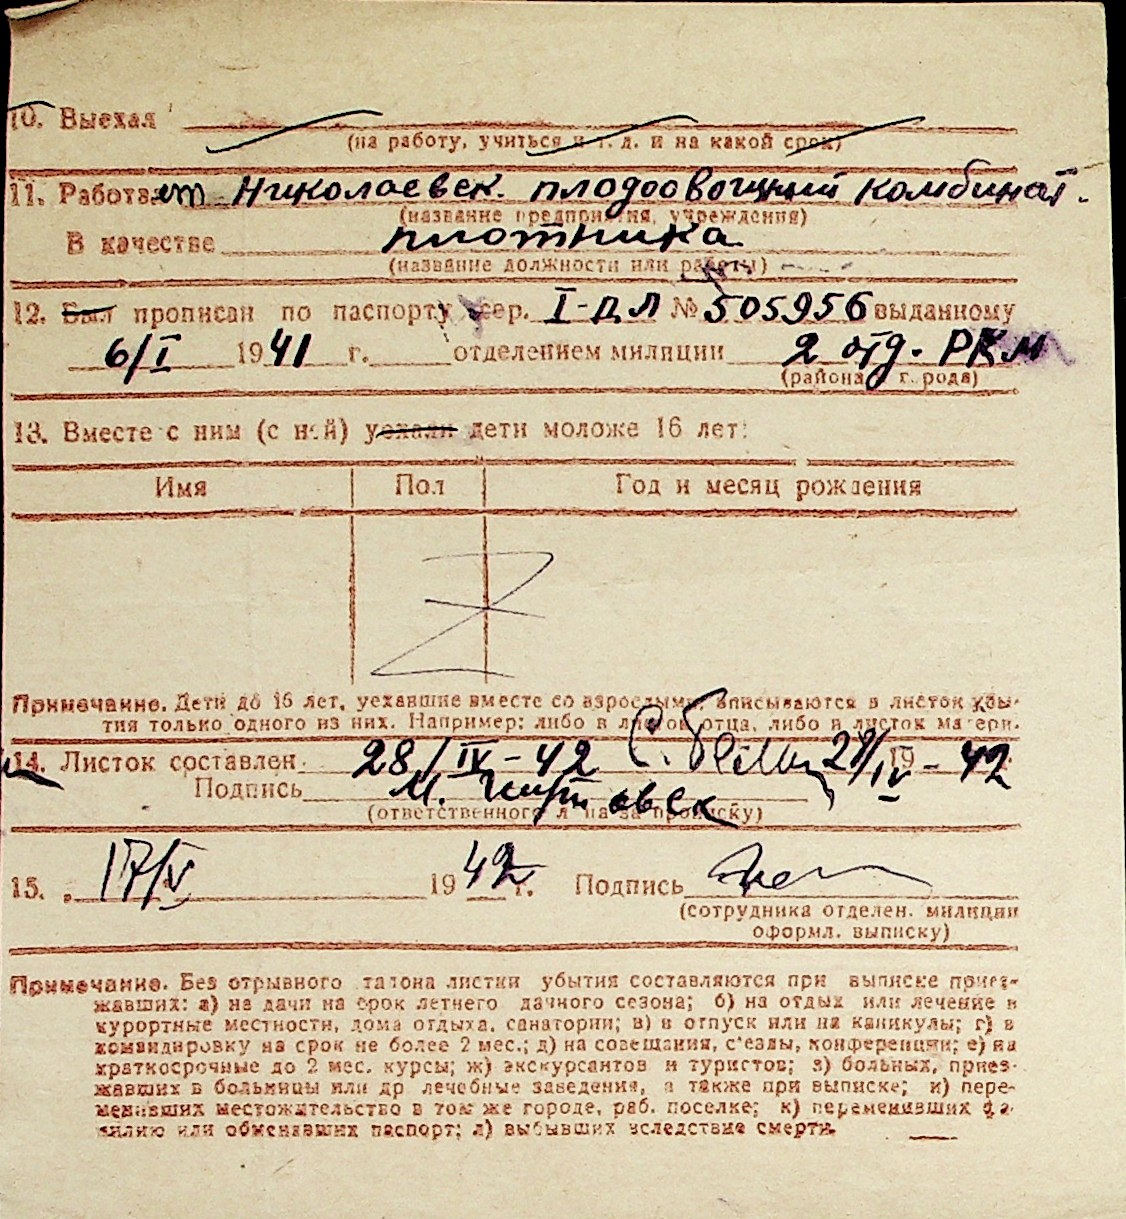 10. Выехал
(на работу, учиться и т. д. и на какой срок)
11. Работает Николаевск. плодоовощный комбинат.
(название предприятия, учреждения)
В качестве плотника
(название должности или работы)
12. Был прописан по паспорту сер. I-ДЛ № 505956 выданному
6/I 1941 г. отделением милиции 2 отд. РКМ
(района, города)
13. Вместе с ним (с ней) уехали дети моложе 16 лет:
Имя Пол Год и месяц рождения
Z
Примечание. Дети до 16 лет, уехавшие вместе со взрослыми, вписываются в листок убы-
тия только одного из них. Например: либо в листок отца, либо в листок матери.
14. Листок составлен 28/IV-42 28/IV 19-42
Подпись М.
(ответственного л на за прописку)
15. 17/V 1942 г. Подпись
(сотрудника отделен. милиции
оформл. выписку)
Примечание. Без отрывного талона листки убытия составляются при выписке приез-
жавших: а) на дачи на срок летнего дачного сезона; б) на отдых или лечение в
курортные местности, дома отдыха, санатории; в) в отпуск или на каникулы; г) в
командировку на срок не более 2 мес.; д) на совещания, с'езды, конференции; е) на
краткосрочные до 2 мес. курсы; ж) экскурсантов и туристов; з) больных, приез-
жавших в больницы или др лечебные заведения, а также при выписке; и) пере-
менивших местожительство в том же городе, раб. поселке; к) переменивших фа-
милию или обменявших паспорт; л) выбывших вследствие смерти.